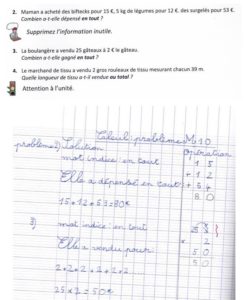 2. Maman a acheté des biftecks pour 15 €, 5 kg de légumes pour 12 €, des surgelés pour 53 €.
Combien a-t-elle dépensé en tout ?
Supprimez l'information inutile.
3. La boulangère a vendu 25 gâteaux à 2 € le gâteau.
Combien a-t-elle gagné en tout ?
4. Le marchand de tissu a vendu 2 gros rouleaux de tissu mesurant chacun 39 m.
Quelle longueur de tissu a-t-il vendue au total ?
Attention à l'unité.
Calcul : problèmes M 10
problème 2) Solution opération
mot indice : en tout 1 5
+ 1 2
Elle a dépensé en tout : + 5 4
8 0
15+12+53=80€
3) mot indice : en tout 2 5
× 2
Elle a vendu pour 5 0
5 0
2+2+2+2+2+2...
25×2=50€